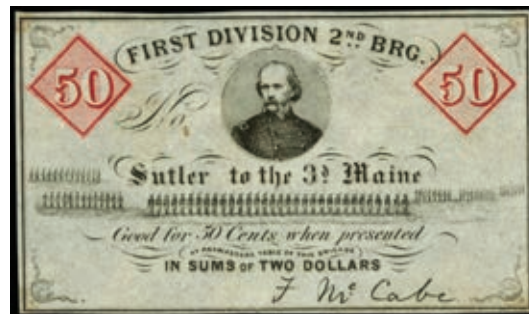 FIRST DIVISION 2ND BRG.
50 50
No.
Sutler to the 3D Maine
Good for 50 Cents when presented
IN SUMS OF TWO DOLLARS
F Mc Cabe